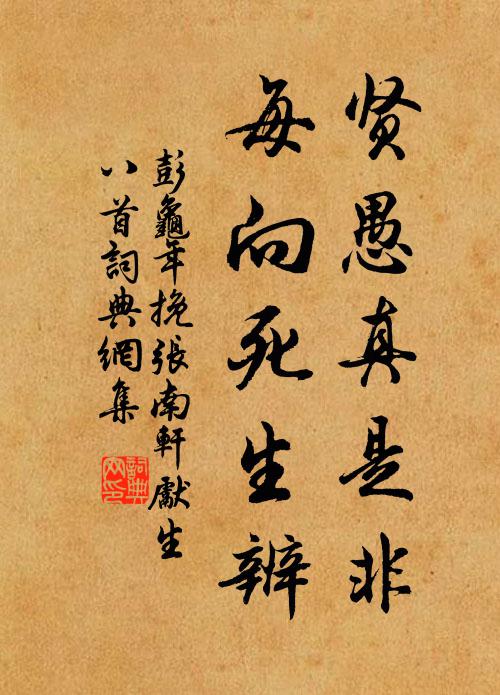 贤愚真是非
每向死生辨
彭龜年挽張南軒獻生
八首詞典網集
詞典
网印